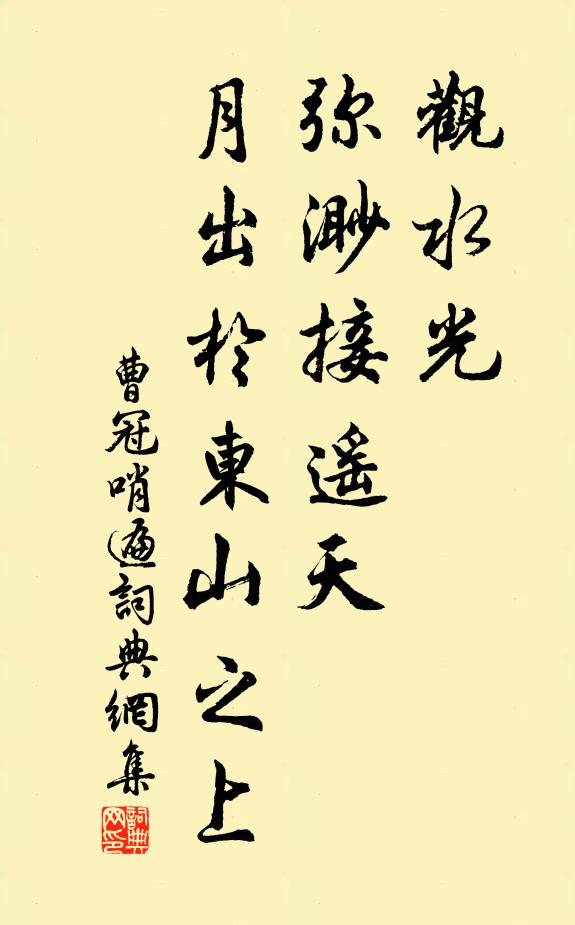 觀水光
弥渺接遥天
月出於東山之上
曹冠哨遍詞典網集
詞典網印